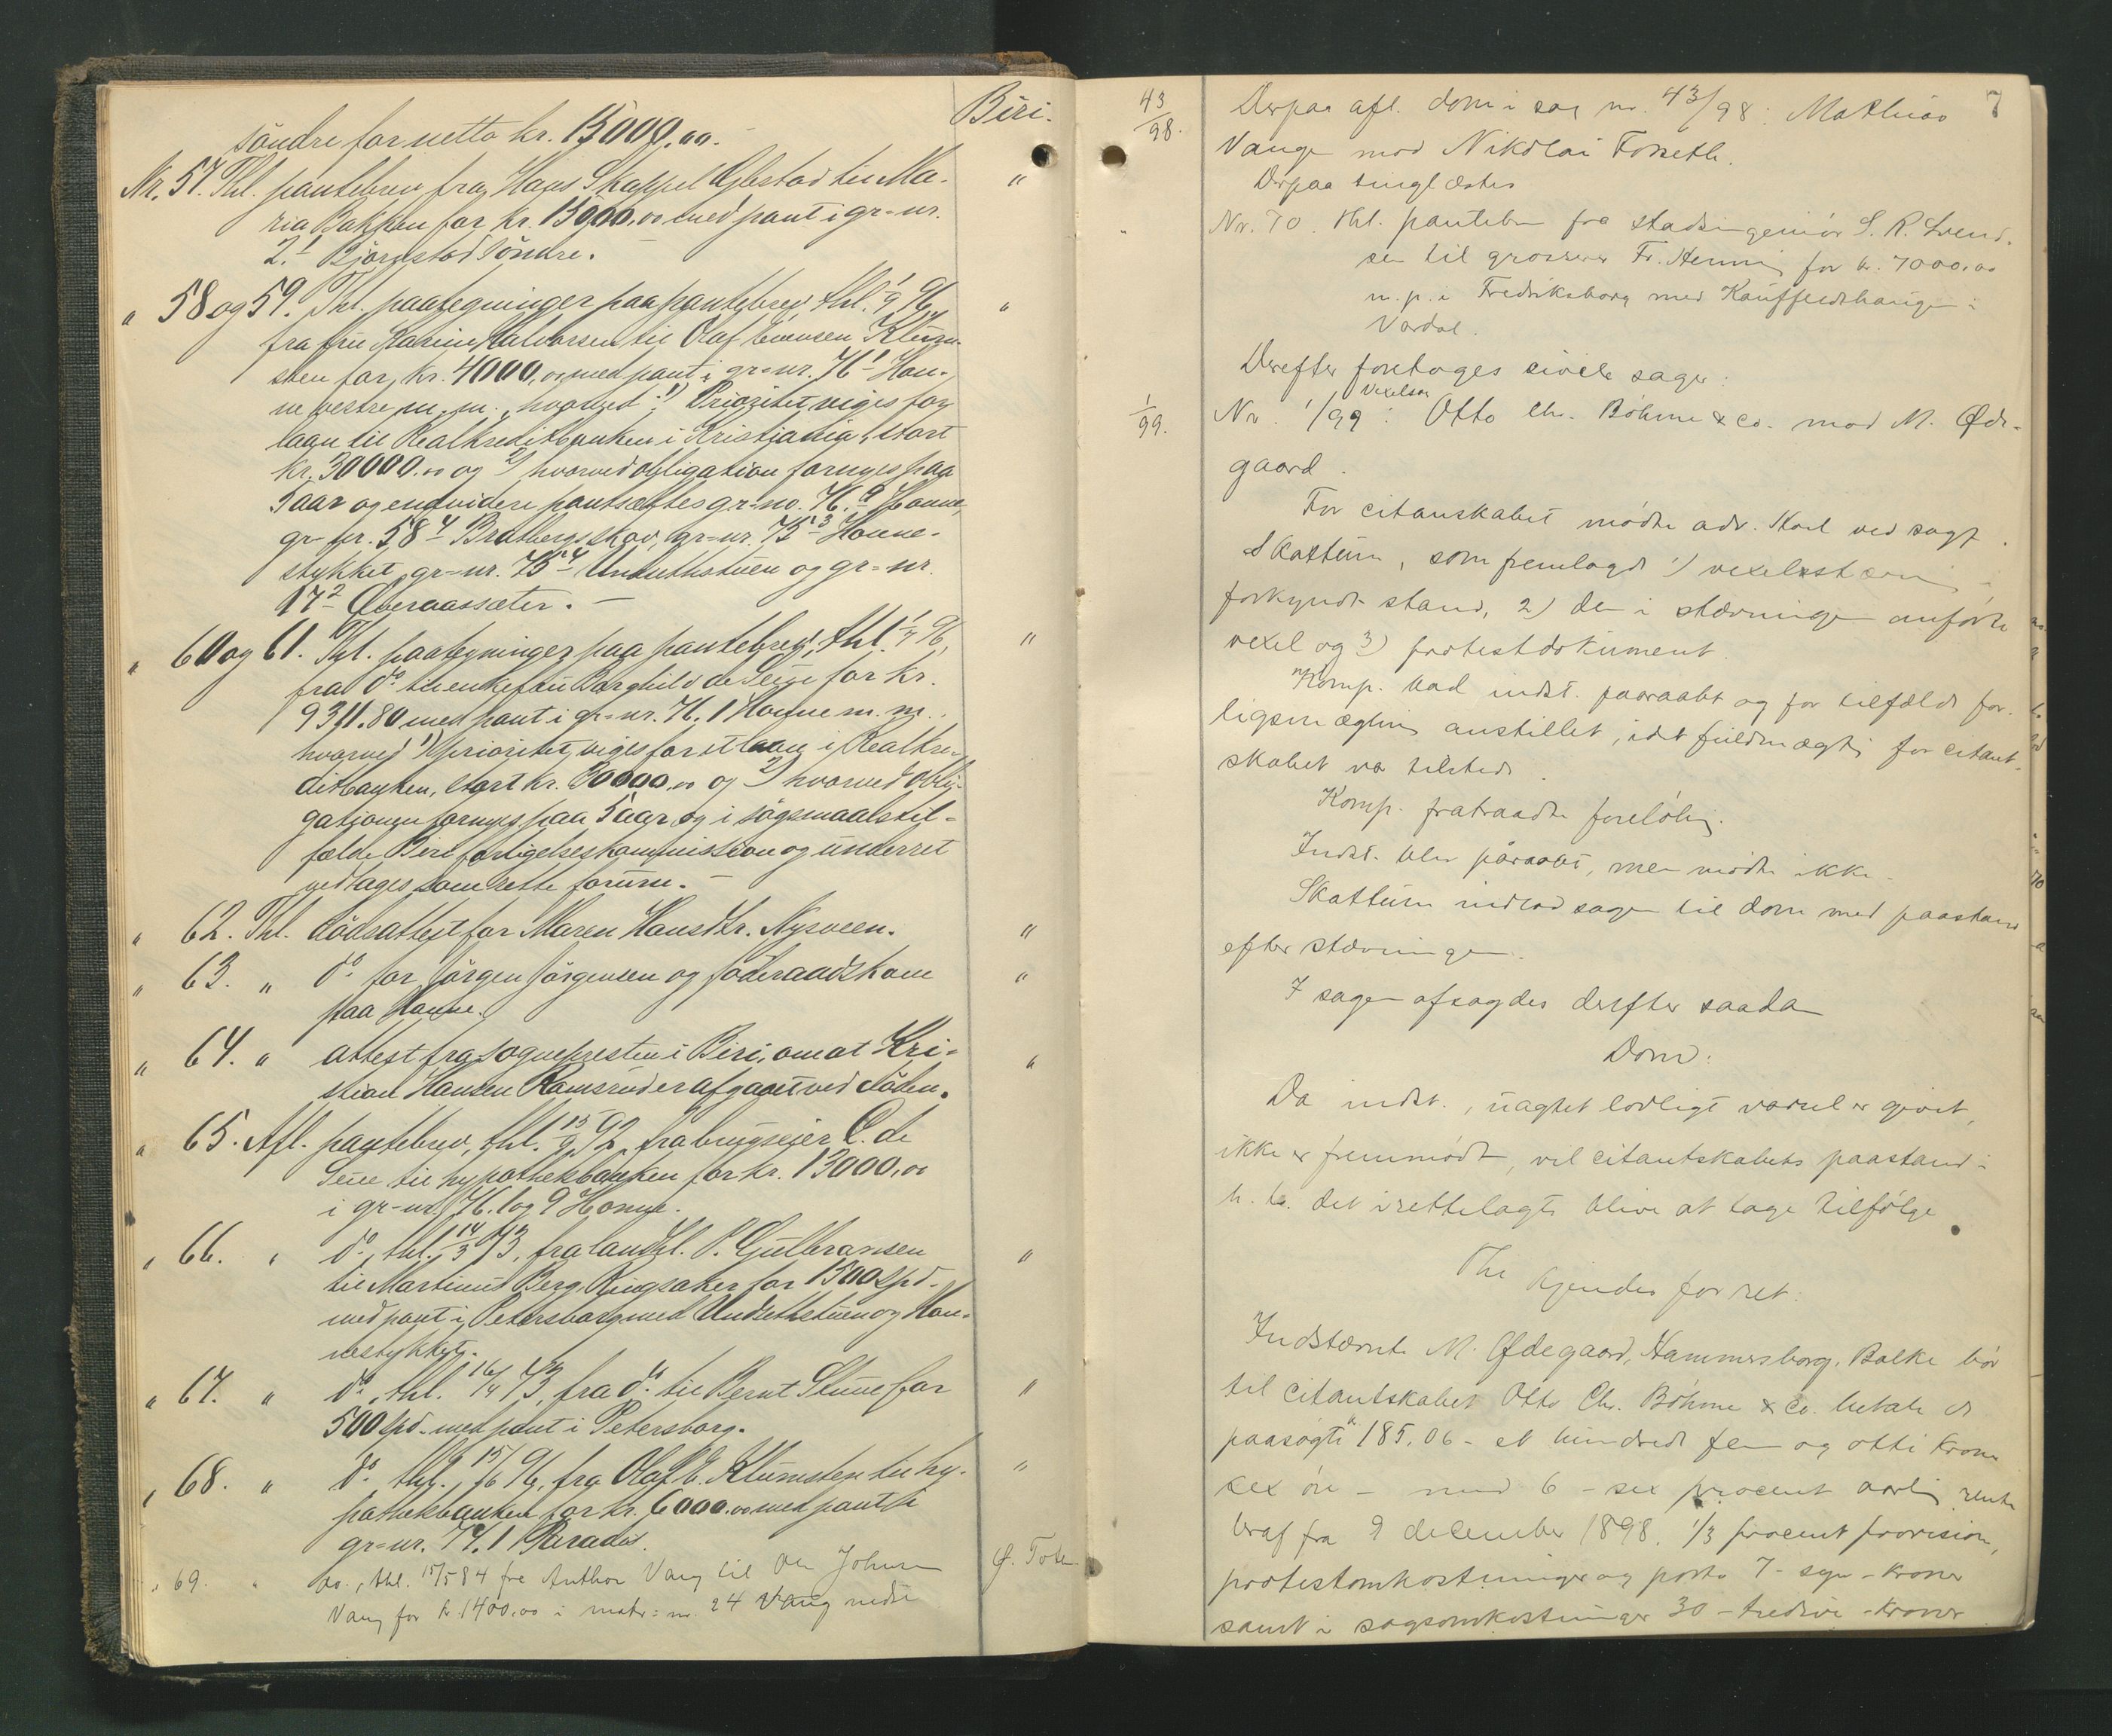 Biri.
söndre for netto kr. 15000,00.
Nr. 57. Thl. pantebrev fra Hans Skappel Gjestad til Ma- "
ria Bakken for kr. 15000,00 med pant i gr=nr.
2.1 Bjørnstad söndre.
" 58 og 59. Thl. paategninger paa pantebrev, thl. 1/7 96, "
fra fru Karine Halvorsen til Olaf Evensen Klum-
sten for kr. 4000,00 med pant i gr=nr. 76 1 Hon-
ne vestre m. m., hvorved 1) Prioritet viges for
laan til Realkreditbanken i Kristiania, stort
kr. 30000.00 og 2) hvorved obligation fornyes paa
5 aar og endvidere pantsættes gr=no. 76.9 Honne,
gr=nr. 58 4 Bratbergskov, gr=nr. 75 3 Honne-
stykket, gr=nr. 75 4 Undsethstuen og gr=nr.
17 2 Överaassæter. —
" 60 og 61. Thl. paategninger paa pantebrev, thl. 1/7 96, "
fra do til enkefru Borghild de Seue for kr.
9311.80 med pant i gr=nr. 76.1 Honne m. m.
hvorved 1) prioritet viges for et laan i Realkre-
ditbanken, stort kr. 30000,00 og 2) hvorved obli-
gationen fornyes paa 5 aar og i søgsmaalstil-
fælde Biri forligelseskommission og underret
vedtages som rette forum. —
" 62. Thl. dødsattest for Maren Hansdtr. Nysveen. "
" 63. " do for Jörgen Jörgensen og föderaadskone "
paa Honne.
" 64. " attest fra sognepresten i Biri, om at Kri- "
stian Hansen Ramsrud er afgaaet ved døden.
" 65. Afl. pantebrev, thl. 15/9 92, fra brugseier C. de
Seue til hypothekbanken for kr. 13000,00
i gr=nr. 76.1 og 9 Honne.
" 66. " do, thl. 14/3 73, fra landhl. P. Gulbransen "
til Martinus Berg, Ringsaker for 1500 Spd.
med pant i Petersborg med Undsethstuen og Hon-
nestykket.
" 67. " do, thl. 16/4 73, fra do til Bernt Stuve for "
500 Spd. med pant i Petersborg.
" 68. " do thl. 15/6 96, fra Olaf E. Klumsten til hy- "
pothekbanken for kr. 6000.00 med pant i
gr=nr. 74.1 Paradis.
" 69. " do., thl. 15/5 84 fra Anthon Vang til Ole Johnsen Ø. Toten
Vang for kr. 1400,00 i matr=nr. 24 Vang nedre
7
43/98. Derpaa afl. dom i sag nr. 43/98: Mathias
Vange mod Nikolai Forseth.
Derpaa tinglæstes
Nr. 70. thl. pantebr. fra stadsingeniør S. R. Svend-
sen til grosserer Fr. Henni for kr. 7000,00
m. p. i Fredriksborg med Kauffeldthaugen i
Vardal.
Derefter foretoges civile sager:
vexelsag
1/99. Nr. 1/99: Otto Chr. Böhme & co. mod M. Øde-
gaard.
For citantskabet mødte adv. Skeel ved sagf.
Skattum, som fremlagde 1) vexelstævning i
forkyndt stand, 2) den i stævningen anførte
vexel og 3) protestdokument.
Komp. bad indst. paaraabt og for tilfælde for-
ligsmægling anstillet, idet fuldmægtig for citant-
skabet var tilstede.
Komp. fratraadte foreløbig.
Indst. blev påraabt, men mødte ikke.
Skattum indlod sagen til dom med paastand
efter stævningen.
I sagen afsagdes derefter saadan
Dom:
Da indst., uagtet lovligt varsel er givet,
ikke er fremmødt, vil citantskabets paastand i
h. t. det irettelagte blive at tage tilfølge.
Thi kjendes for ret:
Indstævnte M. Ødegaard, Hammersborg, Balke bør
til citantskabet Otto Chr. Böhme & Co. betale de
paasøgte kr 185,06 - et hundrede fem og otti kroner
sex øre - med 6 - sex procent aarlig rente
heraf fra 9 december 1898, 1/3 procent provision,
protestomkostninger og porto 7 - syv - kroner
samt i sagsomkostninger 30 - tredive - kroner